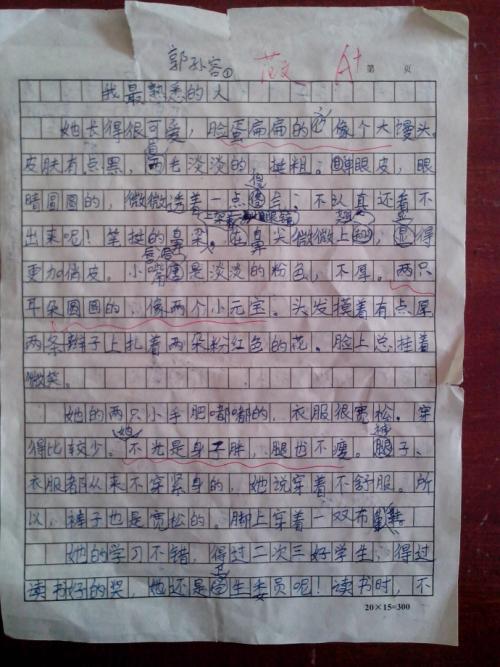 郭孙容① 范文 A+ 第 页
我最熟悉的人
她长得很可爱，脸蛋扁扁的像个大馒头。
皮肤有点黑，眉毛淡淡的，挺粗。单眼皮，眼
睛圆圆的，微微透着一点橙色；不认真还看不
出来呢！笔挺的鼻梁。在鼻尖微微上翘，显得
更加俏皮。小嘴唇是淡淡的粉色，不厚。两只
耳朵圆圆的，像两个小元宝。头发摸着有点厚
两条辫子上扎着两朵粉红色的花。脸上总挂着
微笑。
她的两只小手肥嘟嘟的，衣服很宽松。穿
得比较少。她不光是身子胖，腿也不瘦。裤子、
衣服都从来不穿紧身的，她说穿着不舒服。所
以，裤子也是宽松的，脚上穿着一双布鞋。
她的学习不错，得过二次三好学生，得过
读书好的奖，她还是卫生委员呢！读书时，不
20×15=300